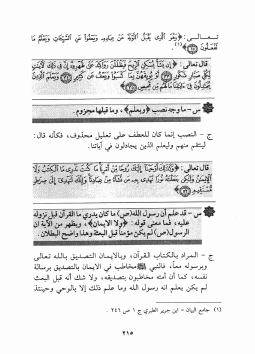 تعالى: ﴿وَهُوَ الَّذِي يَقْبَلُ التَّوْبَةَ عَنْ عِبَادِهِ وَيَعْفُوا عَنِ السَّيِّئَاتِ وَيَعْلَمُ مَا
تَفْعَلُونَ﴾ (١).
قال تعالى: ﴿إِن يَشَأْ يُسْكِنِ الرِّيحَ فَيَظْلَلْنَ رَوَاكِدَ عَلَى ظَهْرِهِ إِنَّ فِي ذَلِكَ لَآيَاتٍ
لِّكُلِّ صَبَّارٍ شَكُورٍ أَوْ يُوبِقْهُنَّ بِمَا كَسَبُوا وَيَعْفُ عَن كَثِيرٍ وَيَعْلَمَ الَّذِينَ
يُجَادِلُونَ فِي آيَاتِنَا مَا لَهُم مِّن مَّحِيصٍ﴾
س - ما وجه نصب ﴿ويعلم﴾، وما قبلها مجزوم.
ج - النصب إنما كان للعطف على تعليل محذوف، فكأنه قال:
لينتقم منهم وليعلم الذين يجادلون في آياتنا.
قال تعالى: ﴿وَكَذَلِكَ أَوْحَيْنَا إِلَيْكَ رُوحًا مِّنْ أَمْرِنَا مَا كُنتَ تَدْرِي مَا الْكِتَابُ وَلَا
الْإِيمَانُ وَلَكِن جَعَلْنَاهُ نُورًا نَّهْدِي بِهِ مَن نَّشَاءُ مِنْ عِبَادِنَا وَإِنَّكَ لَتَهْدِي إِلَى صِرَاطٍ
مُّسْتَقِيمٍ﴾
س - قد علم أن رسول الله (ص) ما كان يدري ما القرآن قبل نزوله
عليه، فما معنى قوله: ﴿ولا الايمان﴾، ويظهر من الآية ان
الرسول (ص) لم يكن مؤمناً قبل البعثة وهذا واضح البطلان.
ج - المراد بالكتاب القرآن، وبالايمان التصديق بالله تعالى
وبرسوله معاً، فالنبي ﷺ مخاطب في الايمان بالتصديق برسالة
نفسه كما أن أمته مخاطبون بتصديقه، ولا شك أنه قبل البعث
لم يكن يعلم انه رسول الله وما علم ذلك إلا بالوحي وحينئذ
(١) جامع البيان - ابن جرير الطبري ج ١ ص ٢٤٦ .
٢١٥